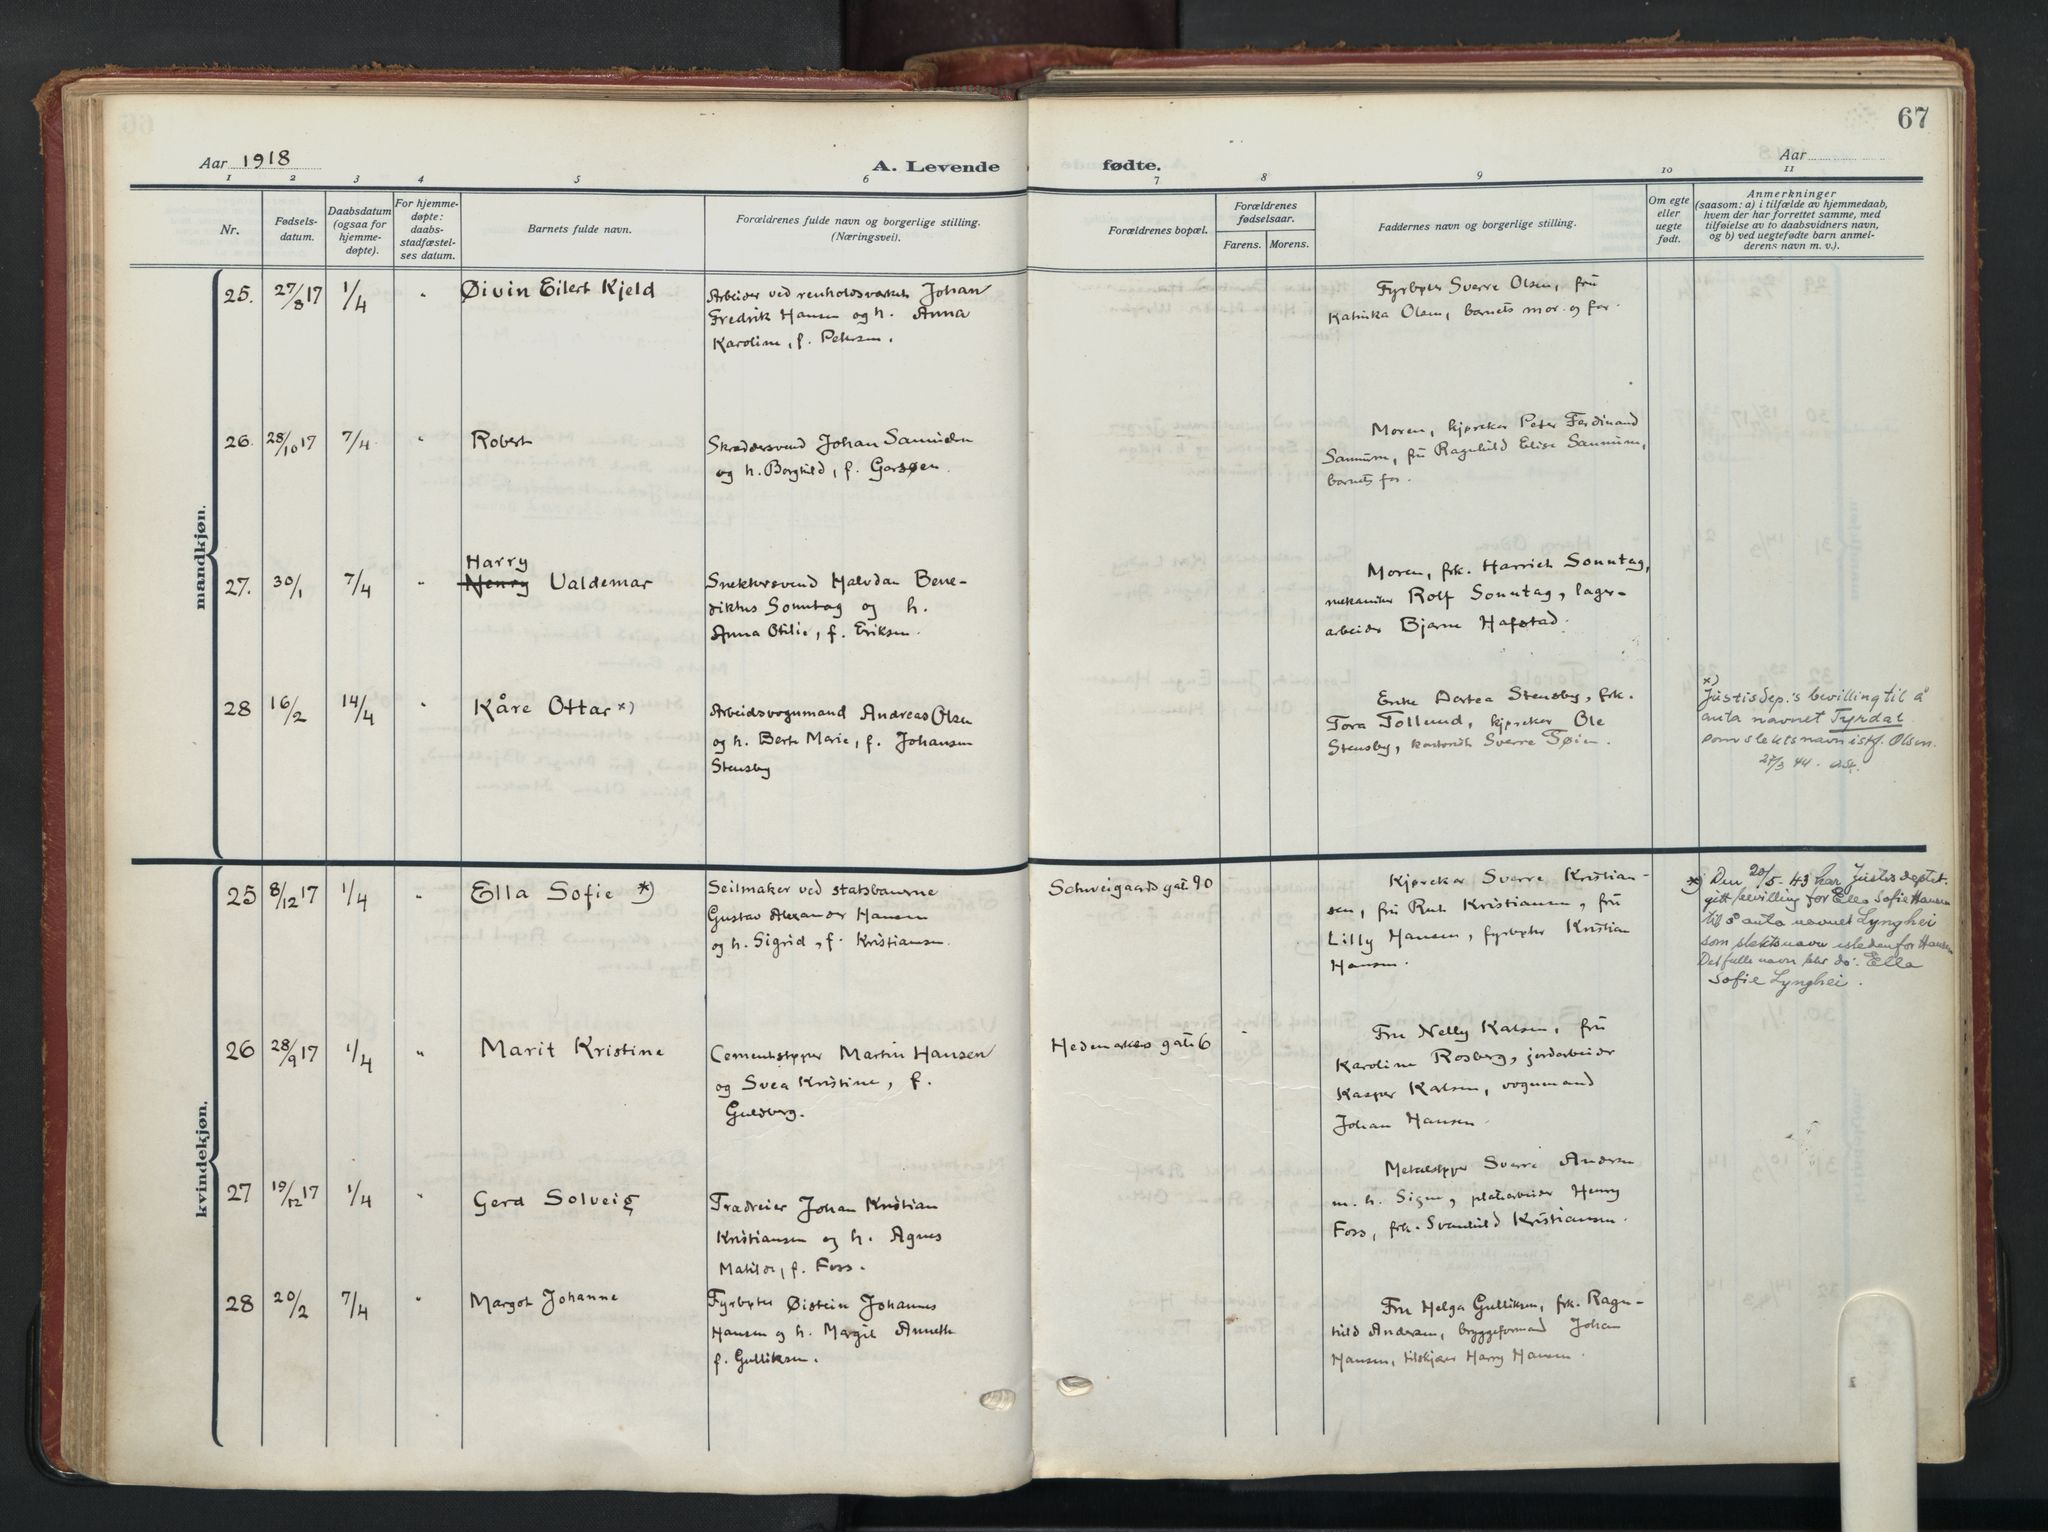 67
Aar 1918
A. Levende fødte.
Aar
1 2 3 4 5 6 7 8 9 10 11
Nr.
Fødsels-
datum.
Daabsdatum
(ogsaa for
hjemme-
døpte).
For hjemme-
døpte:
daabs-
stadfæstel-
ses datum.
Barnets fulde navn.
Forældrenes fulde navn og borgerlige stilling.
(Næringsvei).
Forældrenes bopæl.
Forældrenes
fødselsaar.
Farens. Morens.
Faddernes navn og borgerlige stilling.
Om egte
eller
uegte
født.
Anmerkninger
(saasom: a) i tilfælde av hjemmedaab,
hvem der har forrettet samme, med
tilføielse av to daabsvidners navn,
og b) ved uegtefødte barn anmel-
derens navn m. v.).
mandkjøn.
25. 27/8 17 1/4 " Øivin Eilert Kjeld
Arbeider ved renholdsverket Johan
Fredrik Hansen og h. Anna
Karoline, f. Petersen.
Fyrbøter Sverre Olsen, fru
Katinka Olsen, barnets mor og far.
26. 28/10 17 7/4 " Robert
Skræddersvend Johan Samuelsen
og h. Borghild, f. Garsøen.
Moren, kjøreker Peter Ferdinand
Sannum, fru Ragnhild Elise Sannum,
barnets far.
27. 30/1 7/4 " Harry
Henry Valdemar
Snekkersvend Halvdan Bene-
diktus Sonntag og h.
Anna Otilie, f. Eriksen.
Moren, frk. Harriet Sonntag,
mekaniker Rolf Sonntag, lager-
arbeider Bjarne Hafstad.
28 16/2 14/4 " Kåre Ottar x)
Arbeidsvognmand Andreas Olsen
og h. Berte Marie, f. Johansen
Stensby
Enke Dortea Stensby, frk.
Tora Tollund, kjøreker Ole
Stensby, kontorist Sverre Tøien.
x)
Justisdep.'s bevilling til å
anta navnet Tyrdal
som slektsnavn istf. Olsen.
27/3 44.
kvindekjøn.
25 8/12 17 1/4 " Ella Sofie *)
Seilmaker ved statsbanerne
Gustav Alexander Hansen
og h. Sigrid, f. Kristiansen.
Schweigaards gate 90
Kjøreker Sverre Kristian-
sen, fru Ruth Kristiansen, fru
Lilly Hansen, fyrbøter Kristian
Hansen.
*) Den 20/5-43 har Justisdeptet.
gitt bevilling for Ella Sofie Hansen
til å anta navnet Lynghei
som slektsnavn istedenfor Hansen
Det fulle navn blir da: Ella
Sofie Lynghei.
26 28/9 17 1/4 " Marit Kristine
Cementstøper Martin Hansen
og Svea Kristine, f.
Guldberg.
Hedemarkens gate 6
Fru Nelly Karlsen, fru
Karoline Rosberg, jordarbeider
Kasper Karlsen, vognmand
Johan Hansen.
27 19/12 17 1/4 " Gerd Solveig
Trædreier Johan Kristian
Kristiansen og h. Agnes
Matilde, f. Foss.
Metalstøper Sverre Andersen
m. h. Signe, platearbeider Henry
Foss, frk. Svanhild Kristiansen.
28 20/2 7/4 " Margot Johanne
Fyrbøter Øistein Johannes
Hansen og h. Margit Anneth
f. Gulliksen.
Fru Helga Gulliksen, frk. Ragn-
hild Andersen, bryggeformand Johan
Hansen, tilskjærer Harry Hansen.